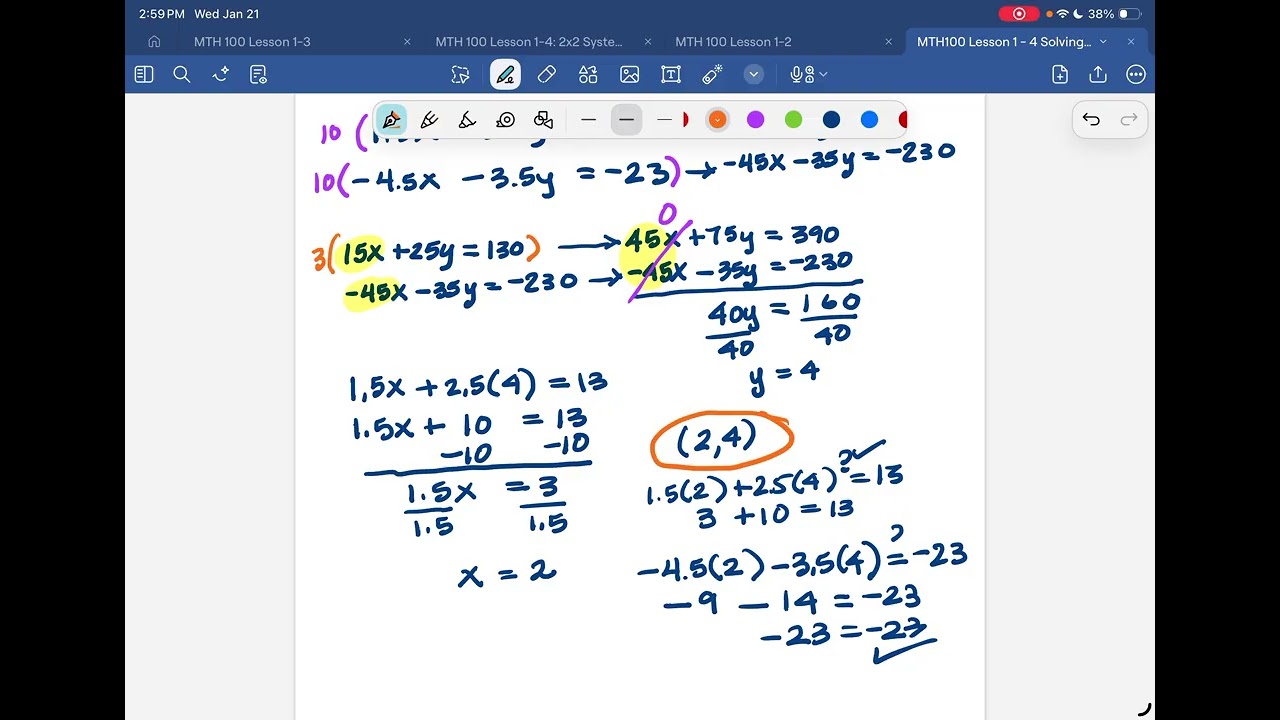 2:59 PM Wed Jan 21 38%
MTH 100 Lesson 1-3 MTH 100 Lesson 1-4: 2x2 Syste... MTH 100 Lesson 1-2 MTH100 Lesson 1 - 4 Solving...
10 (
10(-4.5x -3.5y = -23) → -45x -35y = -230
0
3(15x +25y = 130) → 45x +75y = 390
-45x -35y = -230 → -45x -35y = -230
40y = 160
40 40
y = 4
1.5x + 2.5(4) = 13
1.5x + 10 = 13
-10 -10
1.5x = 3
1.5 1.5
x = 2
(2,4)
1.5(2) +2.5(4) ?= 13 ✓
3 +10 = 13
-4.5(2) -3.5(4) ?= -23
-9 -14 = -23
-23 = -23 ✓